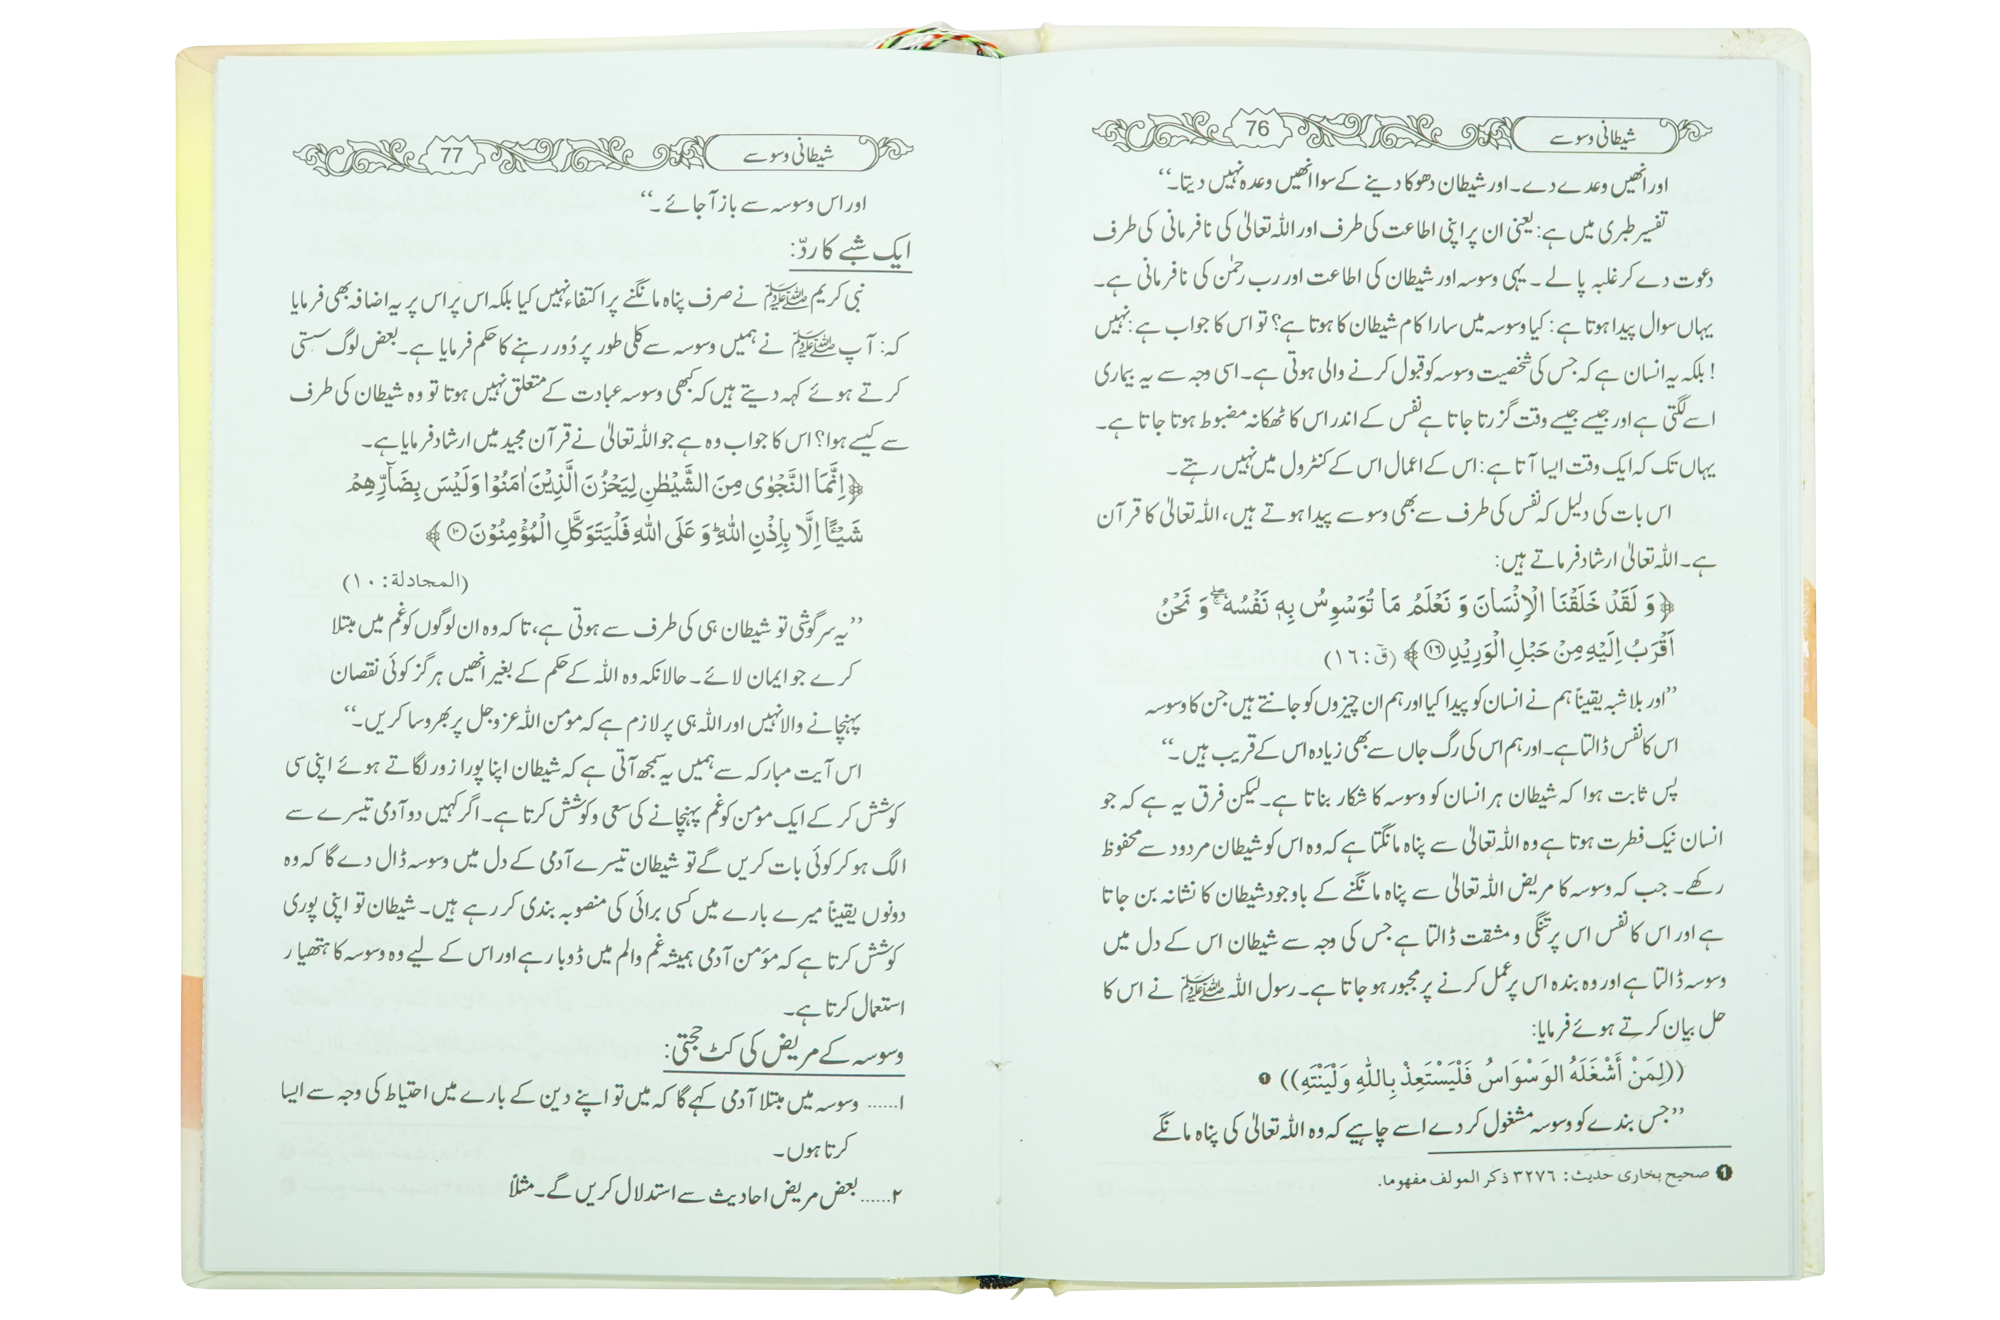 شیطانی وسوسے
76
اور انھیں وعدے دے۔ اور شیطان دھوکا دینے کے سوا انھیں وعدہ نہیں دیتا۔‘‘
تفسیر طبری میں ہے: یعنی ان پر اپنی اطاعت کی طرف اور اللہ تعالیٰ کی نافرمانی کی طرف
دعوت دے کر غلبہ پا لے۔ یہی وسوسہ اور شیطان کی اطاعت اور رب رحمٰن کی نافرمانی ہے۔
یہاں سوال پیدا ہوتا ہے: کیا وسوسہ میں سارا کام شیطان کا ہوتا ہے؟ تو اس کا جواب ہے: نہیں
! بلکہ یہ انسان ہے کہ جس کی شخصیت وسوسہ کو قبول کرنے والی ہوتی ہے۔ اسی وجہ سے یہ بیماری
اسے لگتی ہے اور جیسے جیسے وقت گزرتا جاتا ہے نفس کے اندر اس کا ٹھکانہ مضبوط ہوتا جاتا ہے۔
یہاں تک کہ ایک وقت ایسا آتا ہے: اس کے اعمال اس کے کنٹرول میں نہیں رہتے۔
اس بات کی دلیل کہ نفس کی طرف سے بھی وسوسے پیدا ہوتے ہیں، اللہ تعالیٰ کا قرآن
ہے۔ اللہ تعالیٰ ارشاد فرماتے ہیں:
﴿وَ لَقَدْ خَلَقْنَا الْاِنْسَانَ وَ نَعْلَمُ مَا تُوَسْوِسُ بِهٖ نَفْسُهٗ ۖۚ وَ نَحْنُ
اَقْرَبُ اِلَیْهِ مِنْ حَبْلِ الْوَرِیْدِ ۱۶﴾ (قٓ: ١٦)
’’اور بلا شبہ یقیناً ہم نے انسان کو پیدا کیا اور ہم ان چیزوں کو جانتے ہیں جن کا وسوسہ
اس کا نفس ڈالتا ہے۔ اور ہم اس کی رگ جاں سے بھی زیادہ اس کے قریب ہیں۔‘‘
پس ثابت ہوا کہ شیطان ہر انسان کو وسوسہ کا شکار بناتا ہے۔ لیکن فرق یہ ہے کہ جو
انسان نیک فطرت ہوتا ہے وہ اللہ تعالیٰ سے پناہ مانگتا ہے کہ وہ اس کو شیطان مردود سے محفوظ
رکھے۔ جب کہ وسوسہ کا مریض اللہ تعالیٰ سے پناہ مانگنے کے باوجود شیطان کا نشانہ بن جاتا
ہے اور اس کا نفس اس پر تنگی و مشقت ڈالتا ہے جس کی وجہ سے شیطان اس کے دل میں
وسوسہ ڈالتا ہے اور وہ بندہ اس پر عمل کرنے پر مجبور ہو جاتا ہے۔ رسول اللہ ﷺ نے اس کا
حل بیان کرتے ہوئے فرمایا:
((لِمَنْ أَشْغَلَهُ الوَسْوَاسُ فَلْيَسْتَعِذْ بِاللهِ وَلْيَنْتَهِ)) ❶
’’جس بندے کو وسوسہ مشغول کر دے اسے چاہیے کہ وہ اللہ تعالیٰ کی پناہ مانگے
❶ صحيح بخاری حدیث: ٣٢٧٦ ذكر المولف مفهوما.
شیطانی وسوسے
77
اور اس وسوسہ سے باز آ جائے۔‘‘
ایک شبے کا ردّ:
نبی کریم ﷺ نے صرف پناہ مانگنے پر اکتفاء نہیں کیا بلکہ اس پر اس پر یہ اضافہ بھی فرمایا
کہ: آپ ﷺ نے ہمیں وسوسہ سے کلی طور پر دُور رہنے کا حکم فرمایا ہے۔ بعض لوگ سستی
کرتے ہوئے کہہ دیتے ہیں کہ کبھی وسوسہ عبادت کے متعلق نہیں ہوتا تو وہ شیطان کی طرف
سے کیسے ہوا؟ اس کا جواب وہ ہے جو اللہ تعالیٰ نے قرآن مجید میں ارشاد فرمایا ہے۔
﴿اِنَّمَا النَّجْوٰی مِنَ الشَّیْطٰنِ لِیَحْزُنَ الَّذِیْنَ اٰمَنُوْا وَلَیْسَ بِضَآرِّهِمْ
شَیْــًٔا اِلَّا بِاِذْنِ اللّٰهِ ؕ وَ عَلَی اللّٰهِ فَلْیَتَوَكَّلِ الْمُؤْمِنُوْنَ ۱۰﴾
(المجادلة: ١٠)
’’یہ سرگوشی تو شیطان ہی کی طرف سے ہوتی ہے، تا کہ وہ ان لوگوں کو غم میں مبتلا
کرے جو ایمان لائے۔ حالانکہ وہ اللہ کے حکم کے بغیر انھیں ہرگز کوئی نقصان
پہنچانے والا نہیں اور اللہ ہی پر لازم ہے کہ مومن اللہ عزوجل پر بھروسا کریں۔‘‘
اس آیت مبارکہ سے ہمیں یہ سمجھ آتی ہے کہ شیطان اپنا پورا زور لگاتے ہوئے اپنی سی
کوشش کر کے ایک مومن کو غم پہنچانے کی سعی و کوشش کرتا ہے۔ اگر کہیں دو آدمی تیسرے سے
الگ ہو کر کوئی بات کریں گے تو شیطان تیسرے آدمی کے دل میں وسوسہ ڈال دے گا کہ وہ
دونوں یقیناً میرے بارے میں کسی برائی کی منصوبہ بندی کر رہے ہیں۔ شیطان تو اپنی پوری
کوشش کرتا ہے کہ مؤمن آدمی ہمیشہ غم و الم میں ڈوبا رہے اور اس کے لیے وہ وسوسہ کا ہتھیار
استعمال کرتا ہے۔
وسوسہ کے مریض کی کٹ حجتی:
۱...... وسوسہ میں مبتلا آدمی کہے گا کہ میں تو اپنے دین کے بارے میں احتیاط کی وجہ سے ایسا
کرتا ہوں۔
۲...... بعض مریض احادیث سے استدلال کریں گے۔ مثلاً